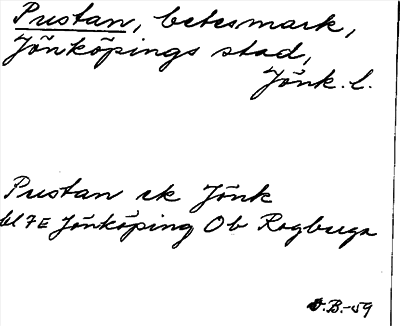 Pustan, betesmark,
Jönköpings stad,
Jönk. l.
Pustan ek Jönk
bl 7E Jönköping Ob Rogberga
O.B.-59